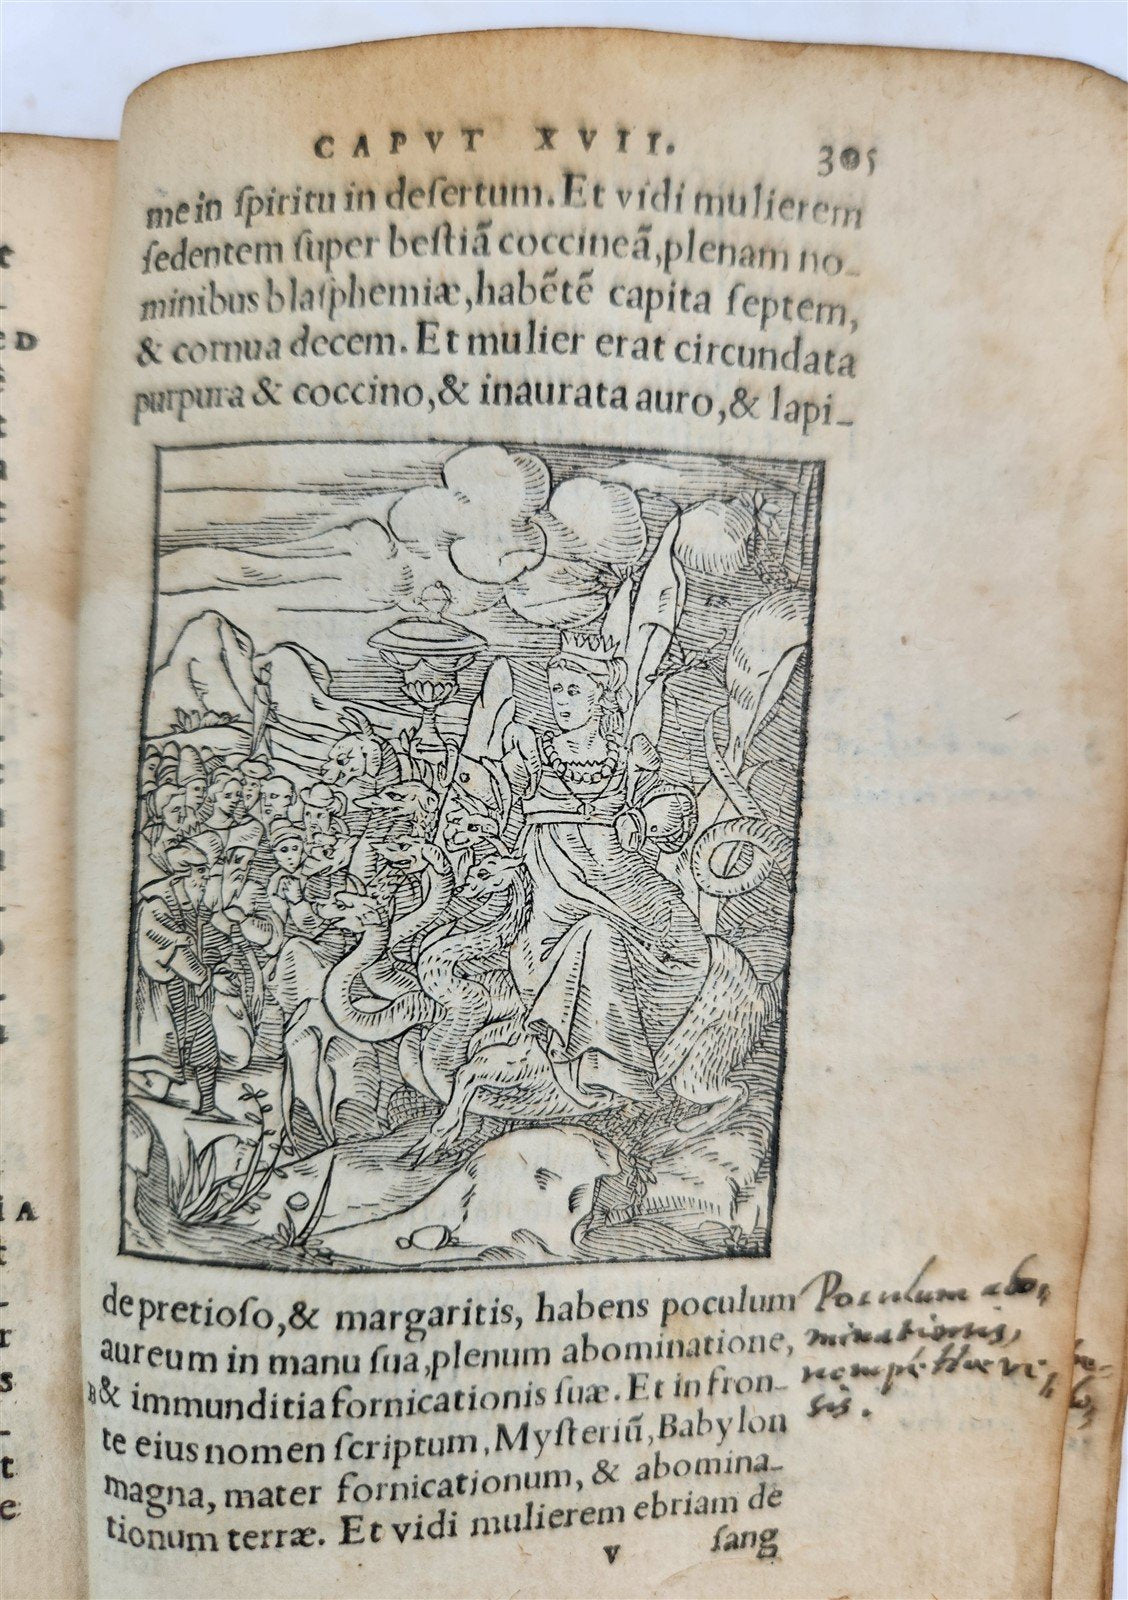 CAPVT XVII. 305
me in ſpiritu in deſertum. Et vidi mulierem
ſedentem ſuper beſtiã coccineã, plenam no-
minibus blaſphemiæ, habẽtẽ capita ſeptem,
& cornua decem. Et mulier erat circundata
purpura & coccino, & inaurata auro, & lapi-
de pretioſo, & margaritis, habens poculum
aureum in manu ſua, plenum abominatione,
B & immunditia fornicationis ſuæ. Et in fron-
te eius nomen ſcriptum, Myſteriũ, Babylon
magna, mater fornicationum, & abomina-
tionum terræ. Et vidi mulierem ebriam de
v ſang
Poculum abo,
minationis,
nempe
sis.
D
A